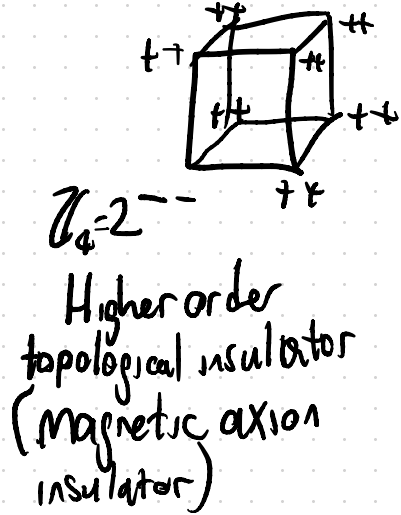 ++ ++
++ ++
++ ++
Z₄=2 -- ++
Higher order
topological insulator
(magnetic axion
insulator)